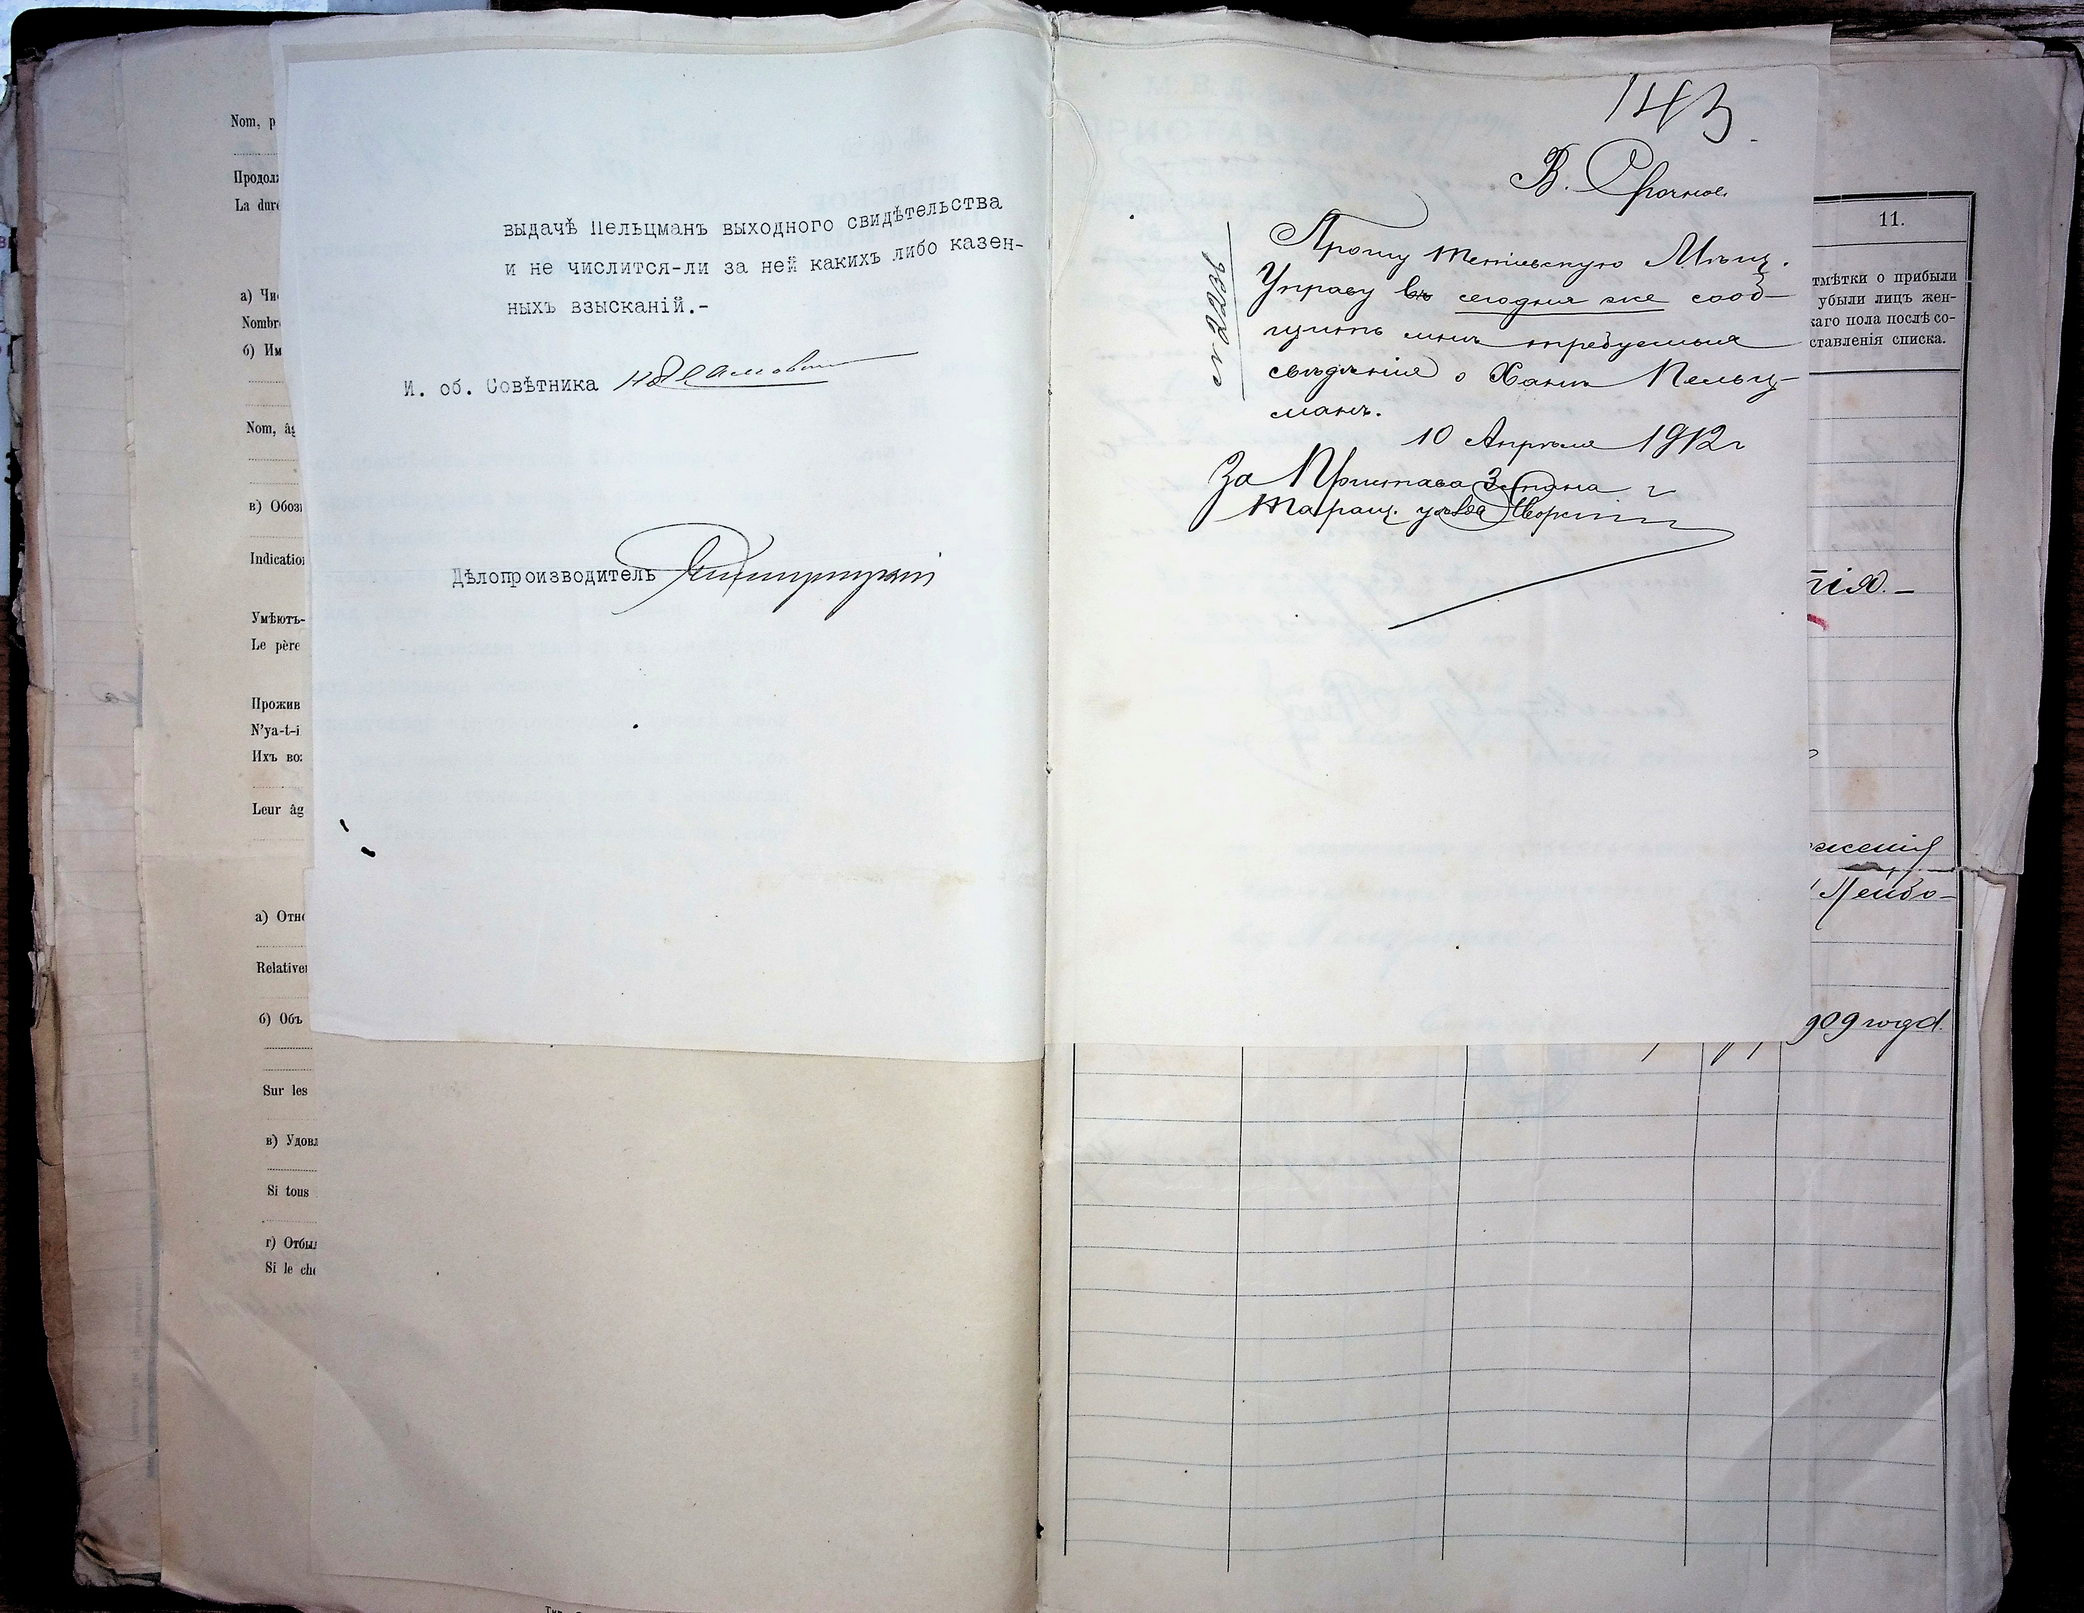 Nom, p
Продол
La dur
а) Чи
Nombr
б) Им
Nom, âg
в) Обоз
Indicatio
Умѣютъ-
Le père
Прожив
N'ya-t-i
Ихъ воз
Leur âg
а) Отно
Relative
б) Объ
Sur les
в) Удовл
Si tous
г) Отбы
Si le che
выдачѣ Пельцманъ выходного свидѣтельства
и не числится-ли за ней какихъ либо казен-
ныхъ взысканій.-
И. об. Совѣтника
Дѣлопроизводитель
143
В. Срочное.
№ 2236
Прошу Тетіевскую Мѣщ.
Управу сегодня же сооб-
щить мнѣ требуемыя
свѣдѣнія о Ханѣ Пельц-
манъ.
10 Апрѣля 1912 г
За Пристава 3 стана
Таращ. уѣзда
11.
тмѣтки о прибыли
убыли лицъ жен-
каго пола послѣ со-
ставленія списка.
тія.-
жені
Лейбо-
909 года.